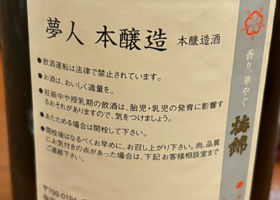 夢人 本醸造 本醸造酒
●飲酒運転は法律で禁止されています。
●お酒は、おいしく適量を。
●妊娠中や授乳期の飲酒は、胎児・乳児の発育に影響す
るおそれがありますので、気をつけましょう。
●あたためる場合は開栓して下さい。
●開栓後はなるべくお早めに、お召し上がり下さい。尚、品質
にお気付きの点があった場合は、下記お客様相談室まで
ご連絡下さい。
〒799-0194
香り、華やぐ
梅錦